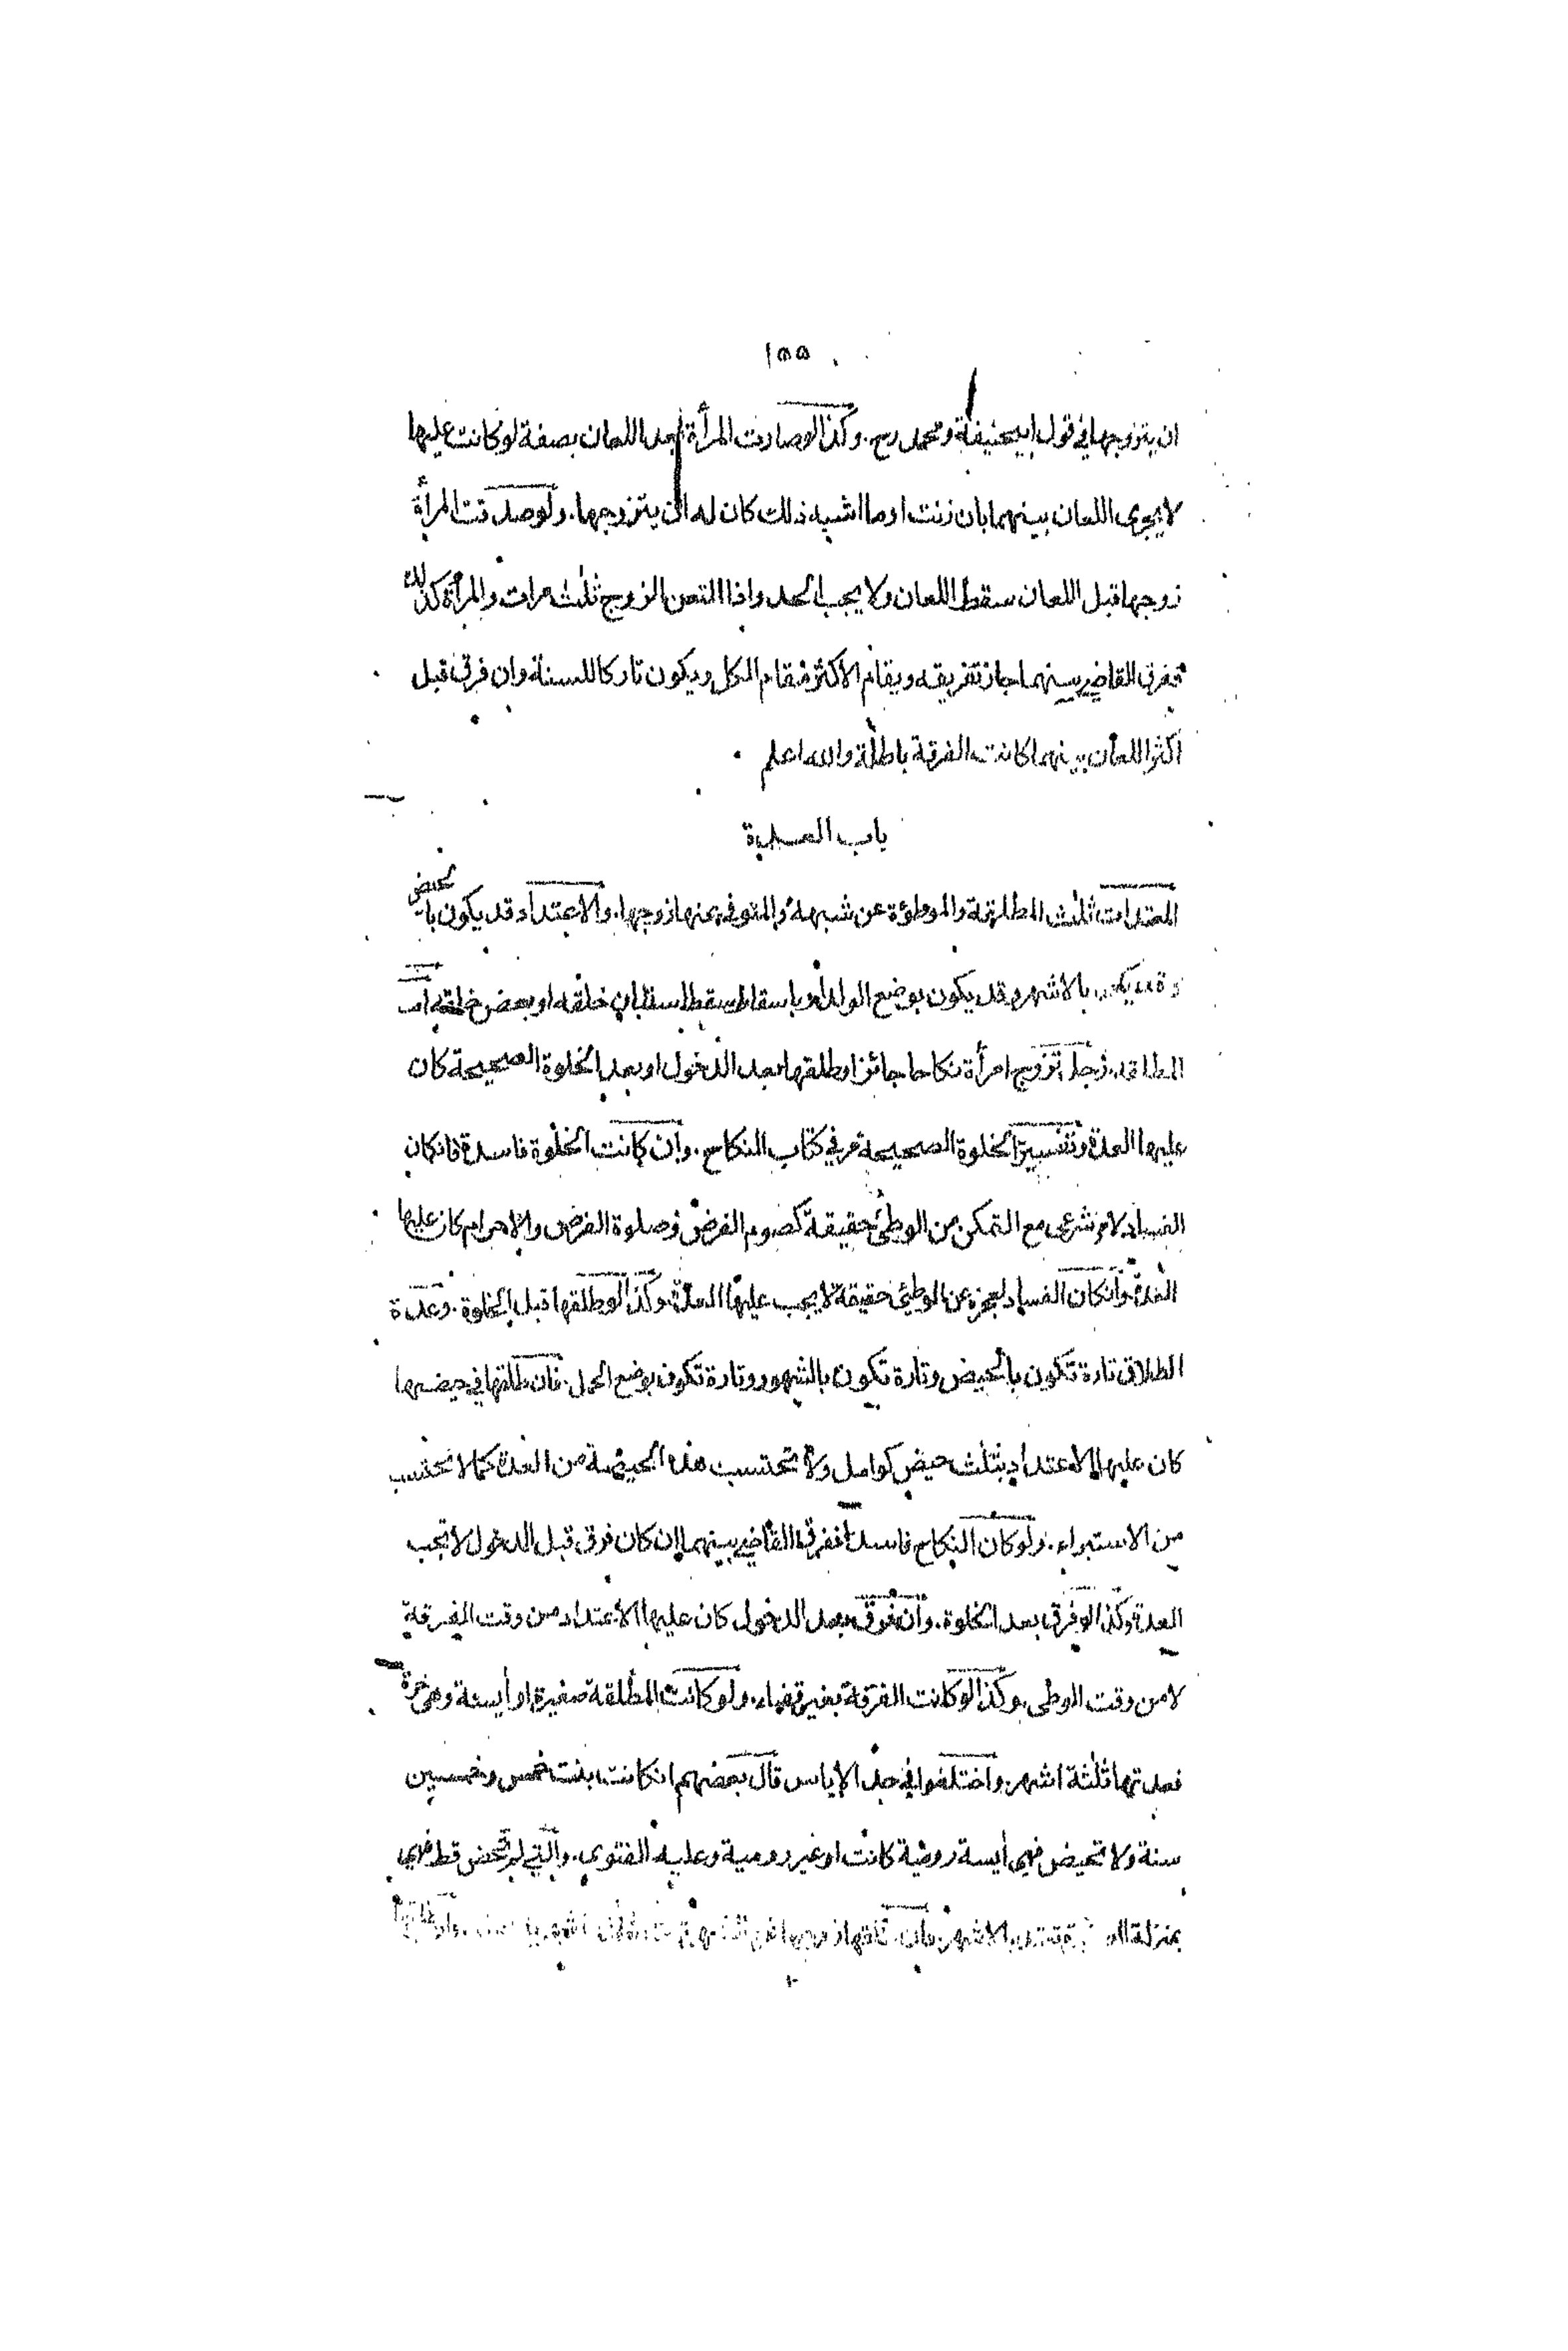 ١٥٥
ان يتزوجها في قول ابيحنيفة ومحمد رح. وكذا لو صارت المرأة بعد اللعان بصفة لو كانت عليها
لا يجرى اللعان بينهما بان زنت او ما اشبه ذلك كان له ان يتزوجها. ولو صدقت المرأة
زوجها قبل اللعان سقط اللعان ولا يجب الحد واذا التعن الزوج ثلث مرات والمرأة كذلك
ففرق القاضي بينهما جاز تفريقه ويقام الاكثر مقام الكل ويكون تاركا للسنة وان فرق قبل
اكثر اللعان بينهما كانت الفرقة باطلة والله اعلم
باب العدة
المعتدات ثلث المطلقة والموطؤة عن شبهة والمتوفى عنها زوجها. والاعتداد قد يكون بالحيض
وقد يكون بالاشهر وقد يكون بوضع الولد او باسقاط سقط استبان خلقه او بعض خلقه اما
المطلقة. رجل تزوج امرأة نكاحا جائزا وطلقها بعد الدخول او بعد الخلوة الصحيحة كان
عليها العدة وتفسير الخلوة الصحيحة مر في كتاب النكاح. وان كانت الخلوة فاسدة فانكان
الفساد لامر شرعي مع التمكن من الوطئ حقيقة كصوم الفرض وصلوة الفرض والاحرام كان عليها
العدة وانكان الفساد لعجزه عن الوطئ حقيقة لا يجب عليها العدة. وكذا لو طلقها قبل الخلوة. وعدة
الطلاق تارة تكون بالحيض وتارة تكون بالشهور وتارة تكون بوضع الحمل. فان طلقها في حيضها
كان عليها الاعتداد بثلث حيض كوامل ولا تحتسب هذه الحيضة من العدة كما لا تحتسب
من الاستبراء. ولو كان النكاح فاسدا ففرق القاضي بينهما ان كان فرق قبل الدخول لا تجب
العدة وكذا لو فرق بعد الخلوة. وان فرق بعد الدخول كان عليها الاعتداد من وقت الفرقة
لا من وقت الوطى. وكذا لو كانت الفرقة بغير قضاء. ولو كانت المطلقة صغيرة او أيسة وهي حرة
فعدتها ثلثة اشهر. واختلفوا في حد الاياس قال بعضهم انكانت بنت خمس وخمسين
سنة ولا تحيض فهي أيسة رومية كانت او غير رومية وعليه الفتوى. والتي لم تحض قط فهي
بمنزلة تعتد بالاشهر. فان طلقها زوجها في